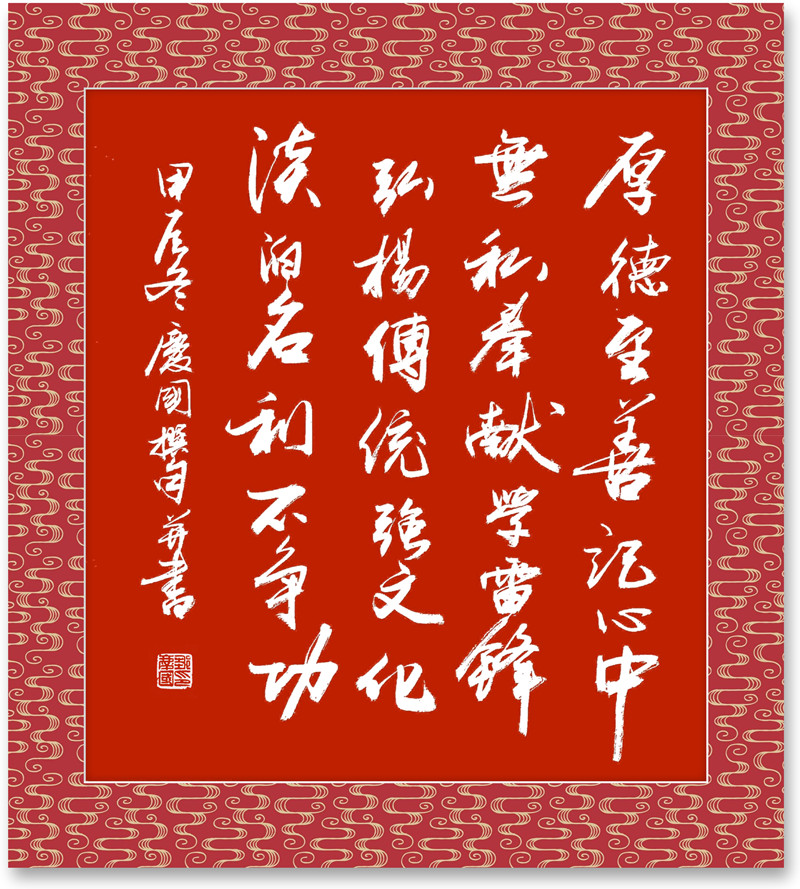 厚德至善記心中
無私奉献学雷锋
弘楊傳統強文化
淡泊名利不争功
甲辰冬慶國撰句并書